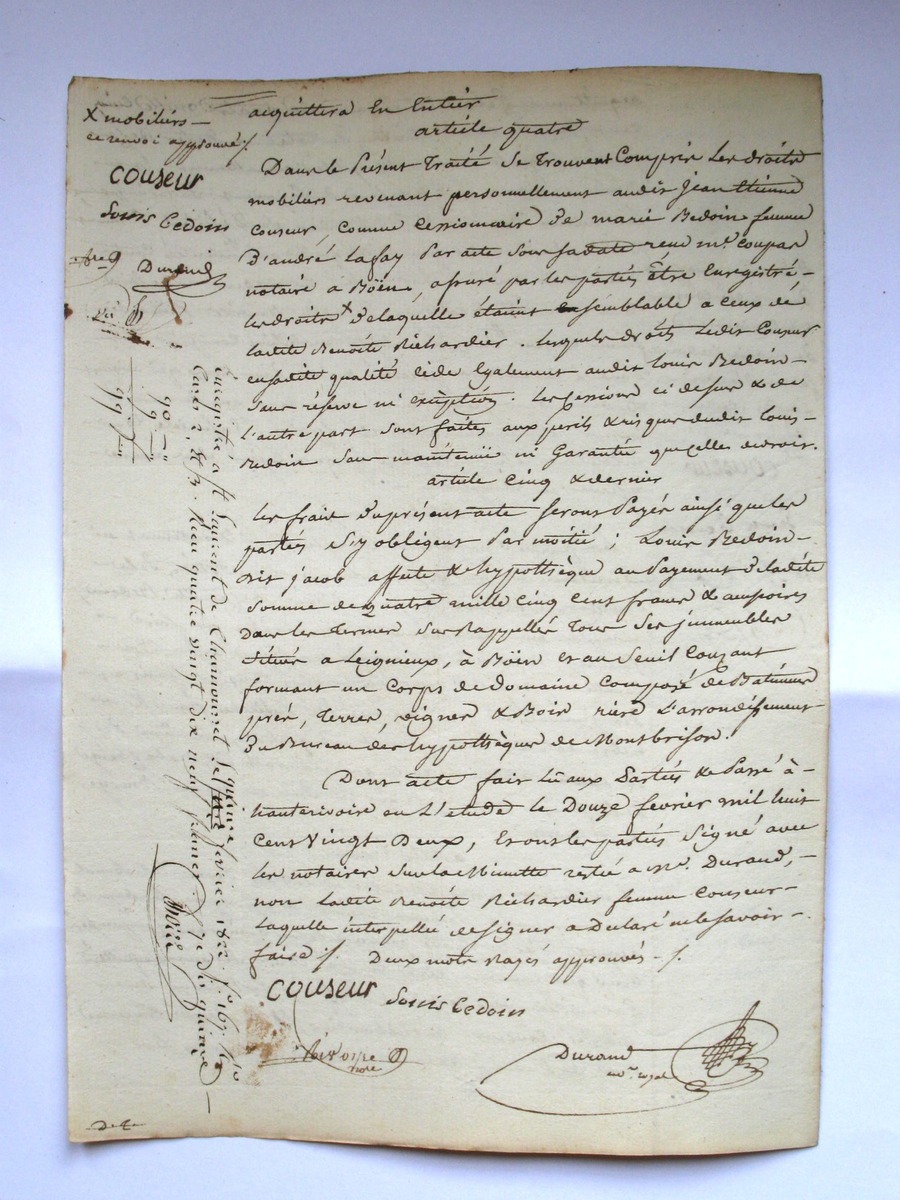 x mobiliers —
ce renvoi approuvé /.
couseur
Louis bedoin
Durand
acquittera En Entier
article quatre
Dans le Présent Traité Se Trouvent Compris Les droits
mobiliers revenant personnellement audit jean Etienne
couseur, comme Cessionnaire de marie Bedoin femme
D'andré Lafay Par acte Sous sa date reçu mr. coupat
notaire a Böen, assuré par les parties être Enregistré —
les droits x de laquelle étaient semblable a ceux de
ladite Benoîte Richardier. lesquels droits ledit Couseur
en sadite qualité cède Egalement audit Louis Bedoin —
Sans réserve ni exception. Les Cessions ci dessus & de
L'autre part sont faites aux perils & risques dudit louis
Bedoin sans maintenue ni Garantie quelles de droit.
article cinq & dernier
Les frais du présent acte seront Payés ainsi que les
parties s'y obligent Par moitié ; Louis Bedoin —
dit jacob affecte & hypothèque au Payement de ladite
Somme de quatre mille cinq cent francs &
Dans les termes sus Rappellés Tous Ses jmmeubles
Situés a Leignieux, à Böen et au Seuil Couzant
formant un Corps de Domaine Composé de Batiments
prés, Terres, vignes & Bois riere L'arrondissement
Du Bureau des hypothèques de Montbrison.
Dont acte fait Lû aux Parties & Passé à —
hauterivoire en L'etude le Douze fevrier mil huit
Cent Vingt Deux, Et ont les parties Signé avec
les notaires Sur la Minutte restée a mr. Durand, —
non Ladite Benoîte Richardier femme Couseur —
Laquelle interpellée de signer a Déclaré ne le savoir —
faire /. Deux mots Rayés approuvés — /.
couseur
Louis bedoin
Durand
nore. royal
Enregistré à st. Laurent de Chamousset le quinze fevrier 1822. fo. 167. Ro.
Cases 2, & 3. Reçu quatre vingt dix neuf francs
90. —
9. —
99. f